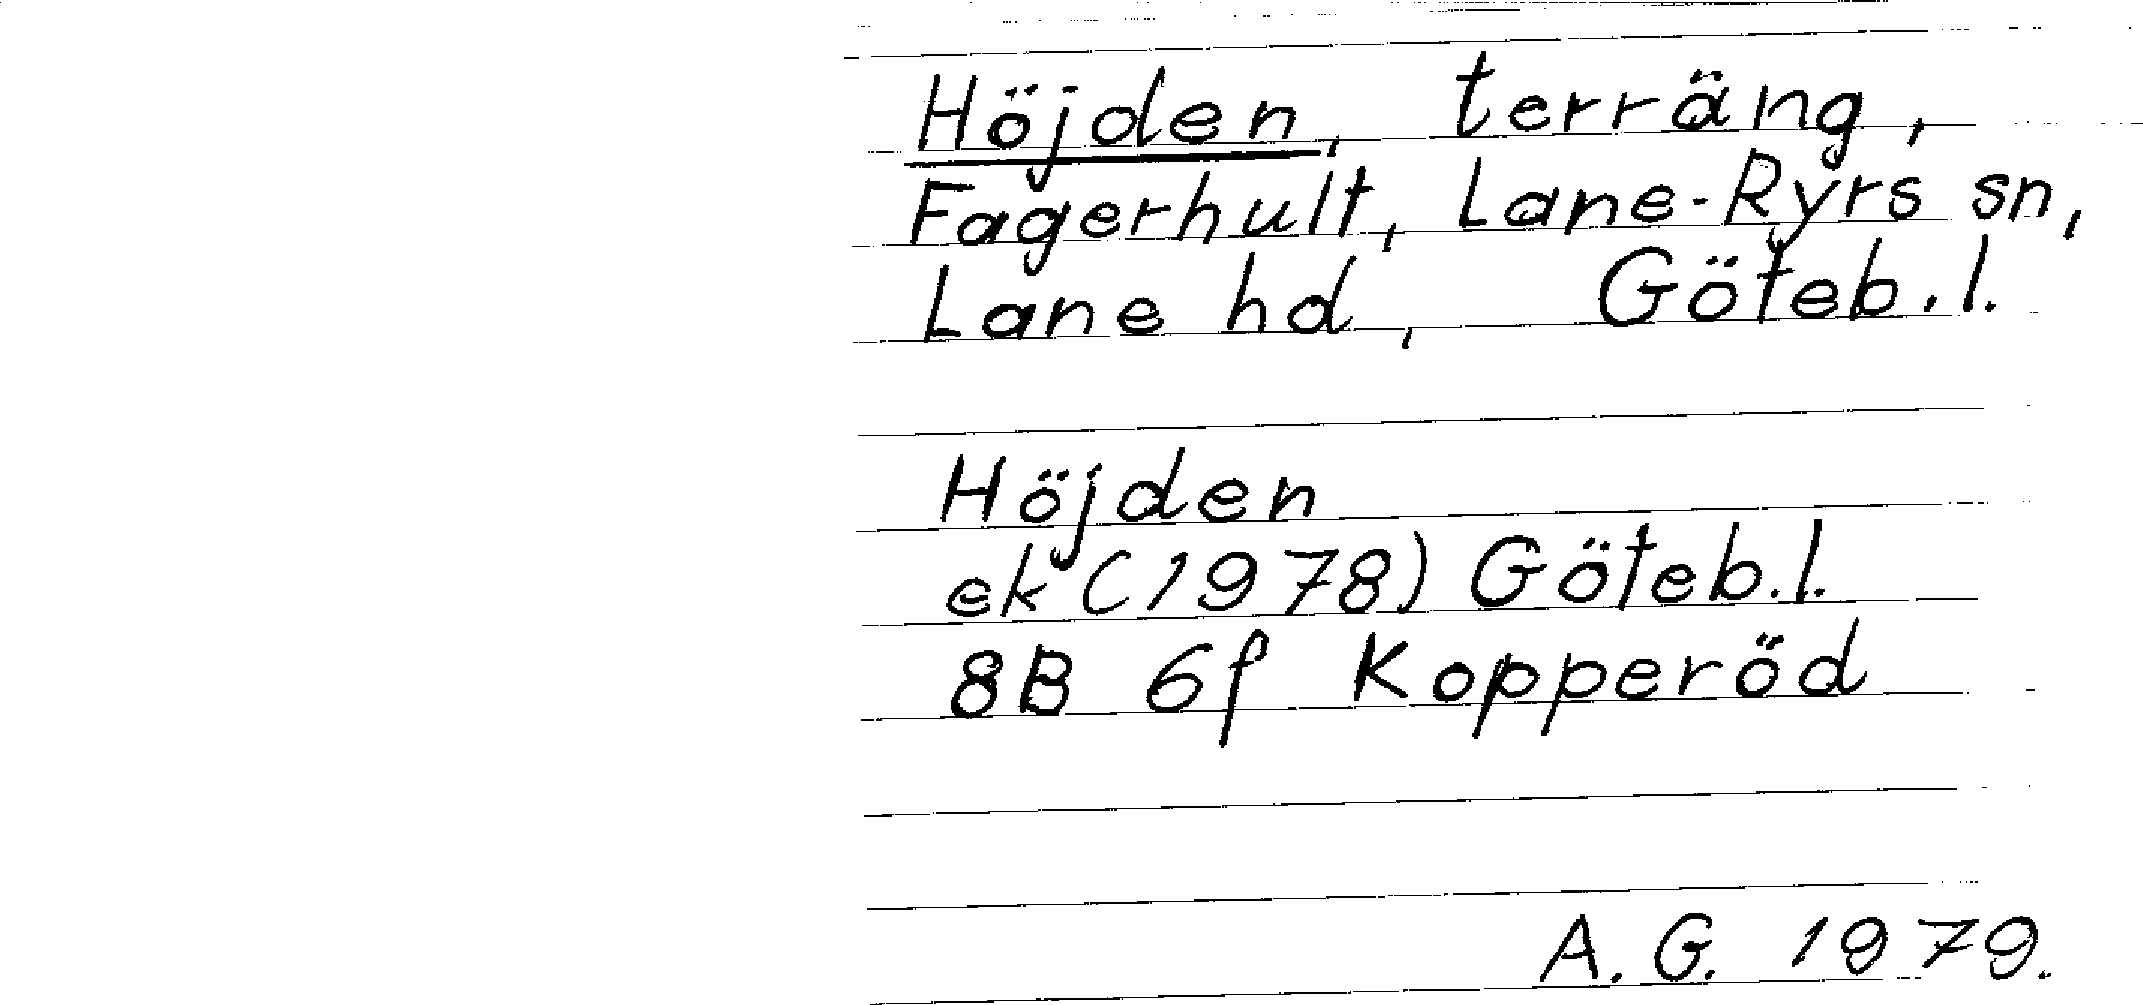 Höjden, terräng,
Fagerhult, Lane-Ryrs sn,
Lane hd, Göteb.l.
Höjden
ek (1978) Göteb.l.
8B 6f Kopperöd
A.G. 1979.